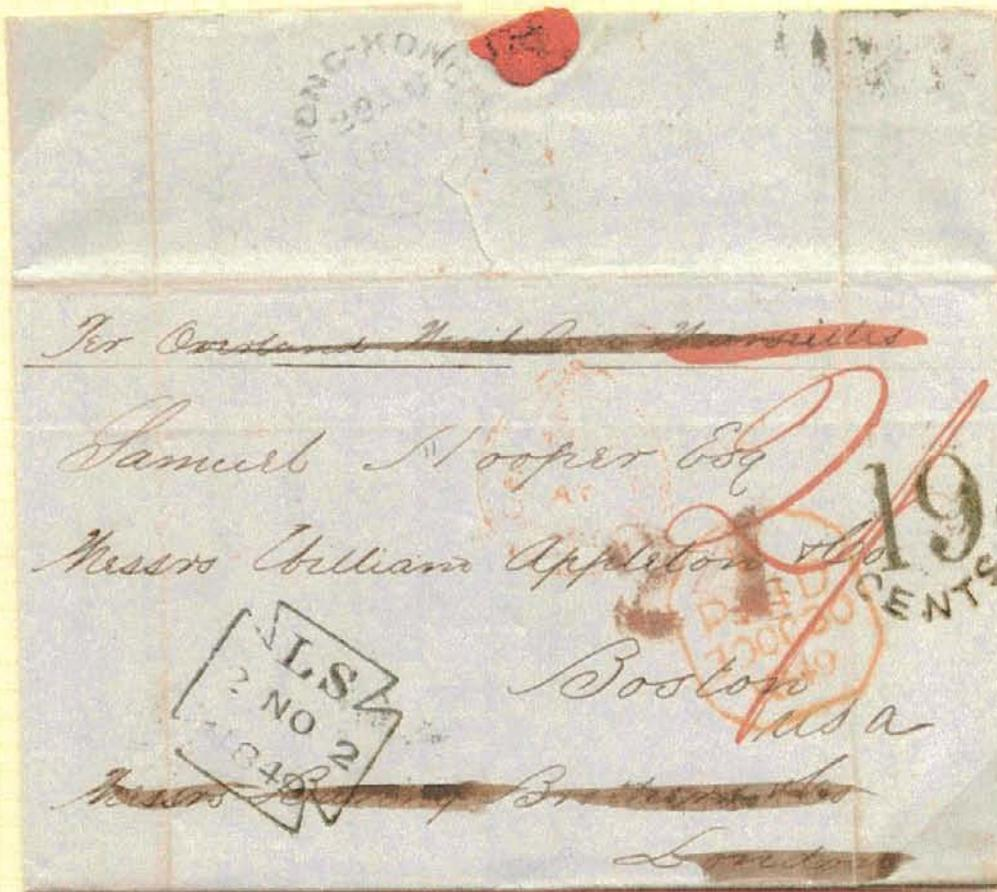 HONG-KONG
Per Overland Mail via Marseilles
Samuel Hooper Esq
Messrs William Appleton & Co
Boston
USA
Messrs Baring Brothers & Co
London
19
CENTS
21
PAID
30 OC 30
1849
LS
2 NO 2
1849